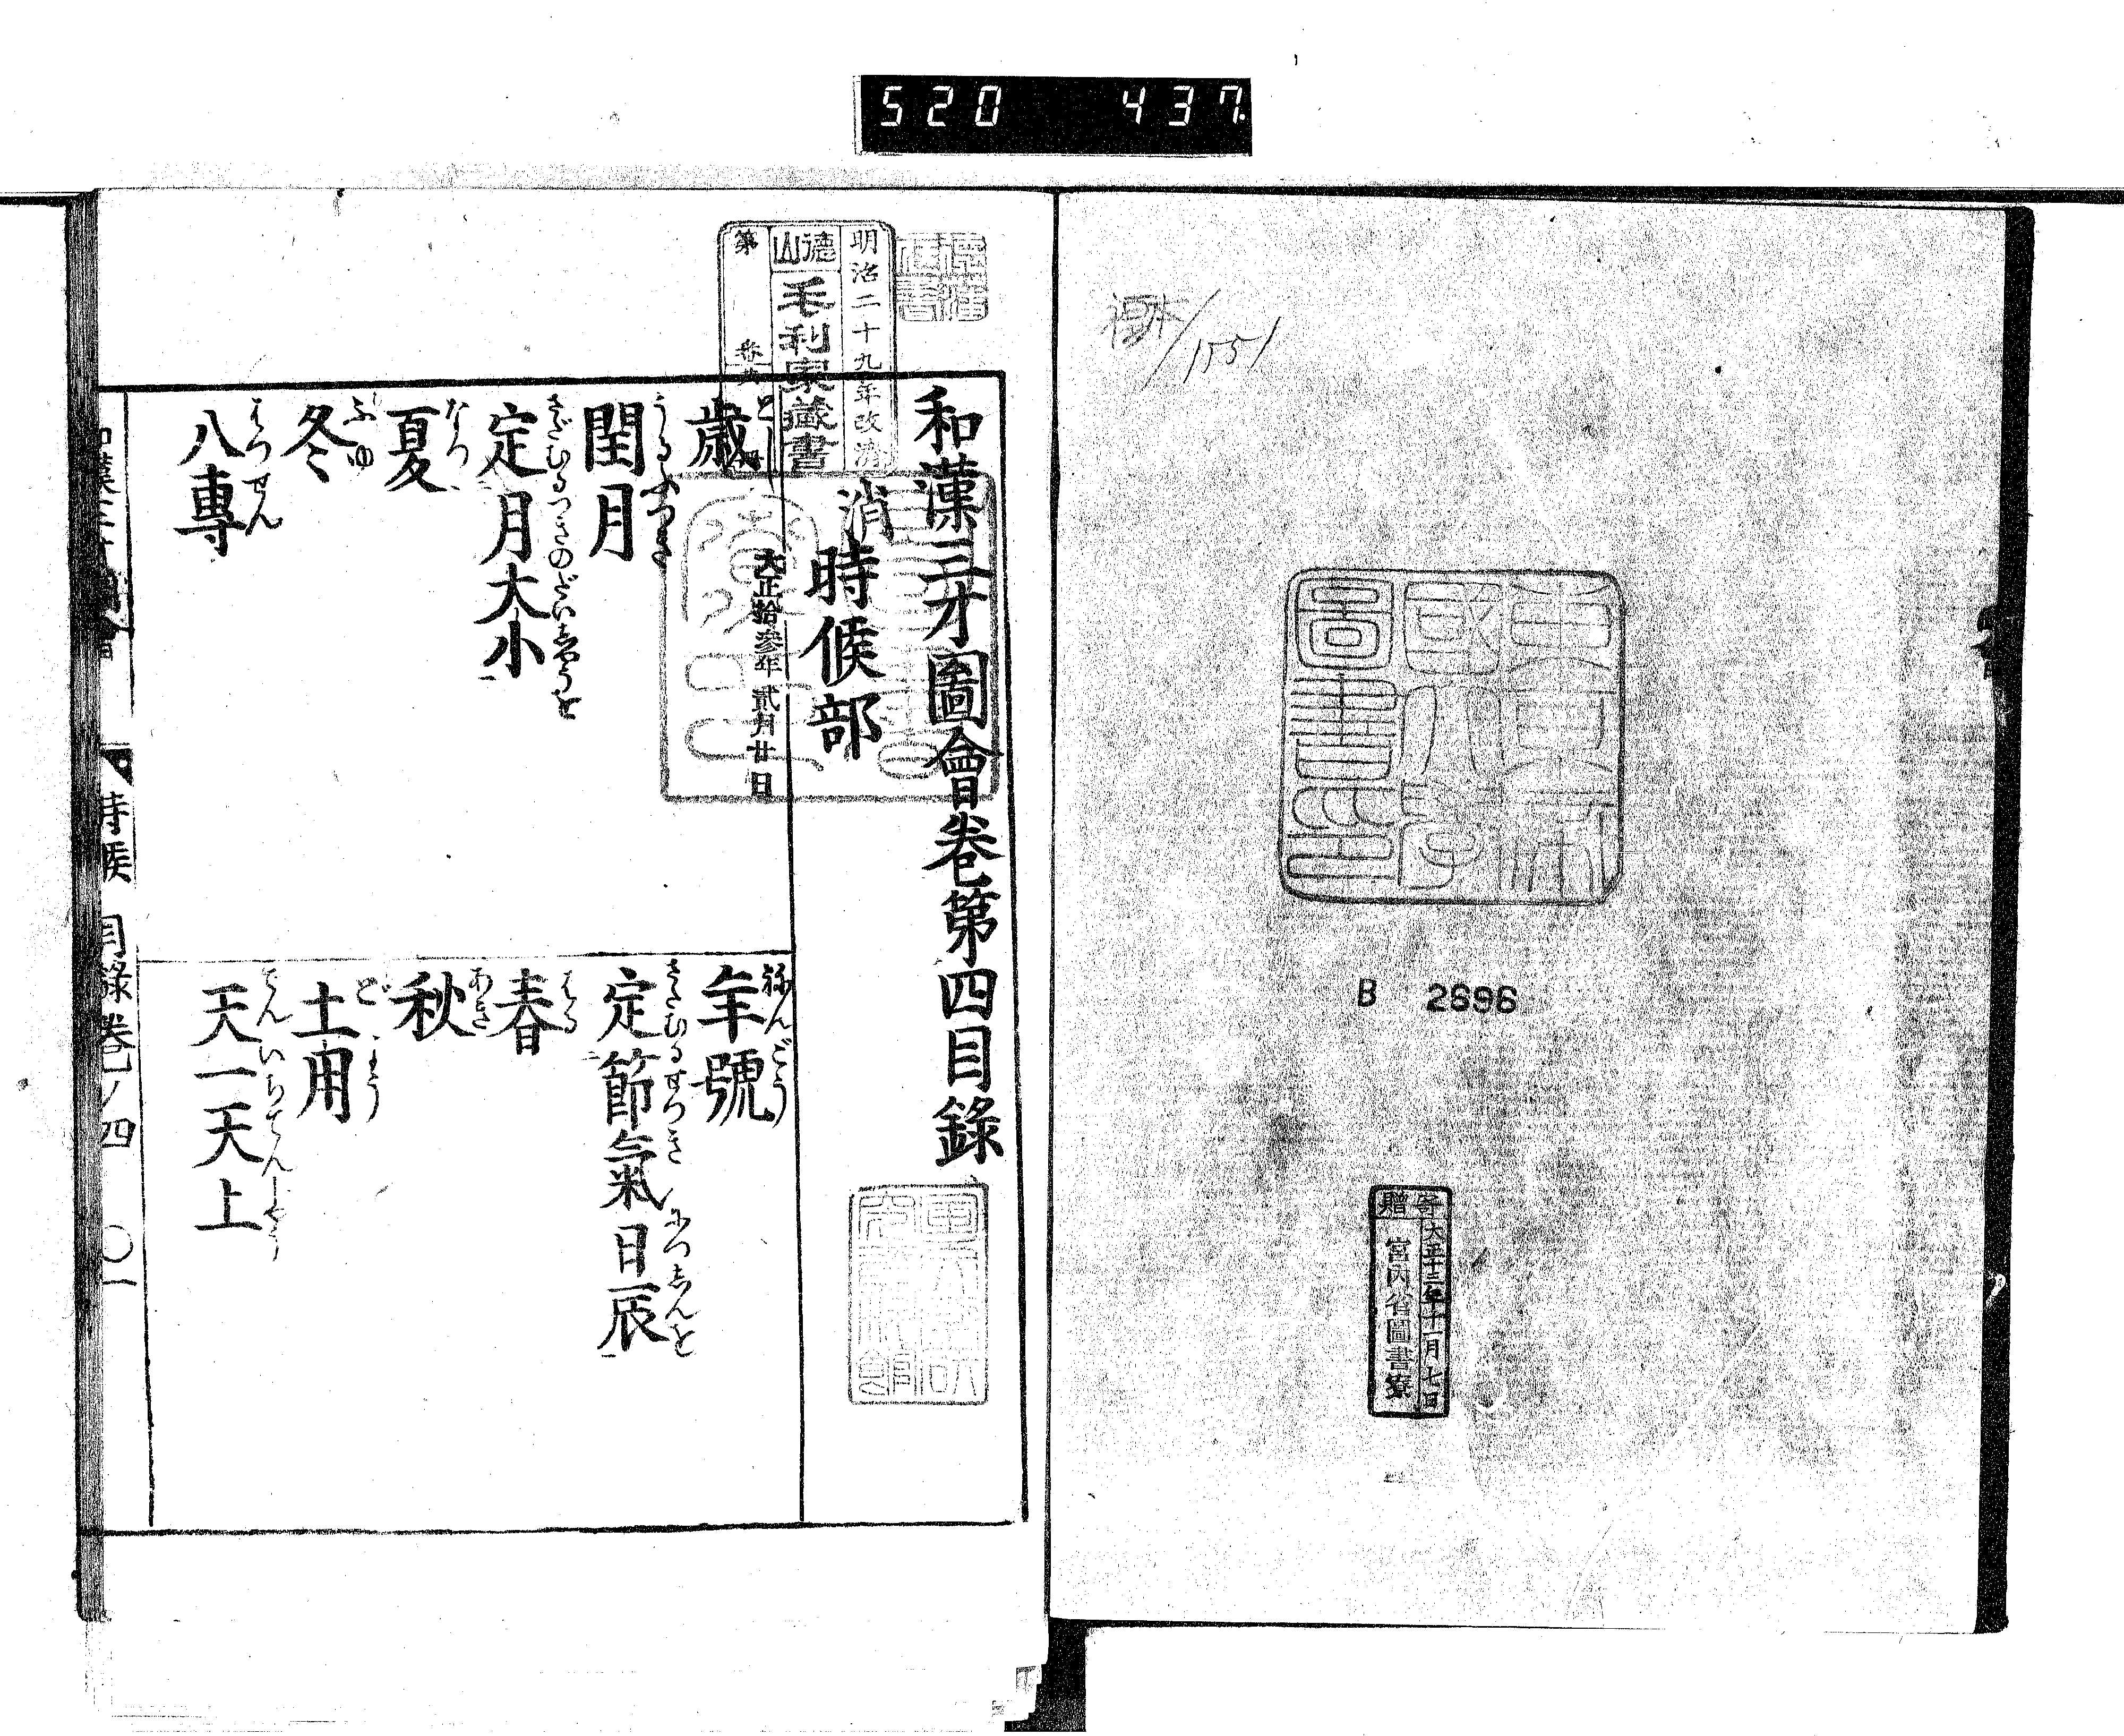 520 437
東京帝國大學圖書印
B 2696
寄贈
大正十三年十一月七日
宮内省圖書寮
明治二十九年改濟
德山
毛利家藏書
第
消
大正拾參年貳月廿日
和漢三才圖會卷第四目錄
時候部
歳 とし
年號 ねんごう
閏月 うるふつき
定節氣日辰 さだむるせつき につしんを
定月大小 さだむるつきのだいせうを
春 はる
夏 なつ
秋 あき
冬 ふゆ
土用 どよう
八專 はつせん
天一天上 てんいちてんしやう
時候 目錄 卷ノ四 〇一